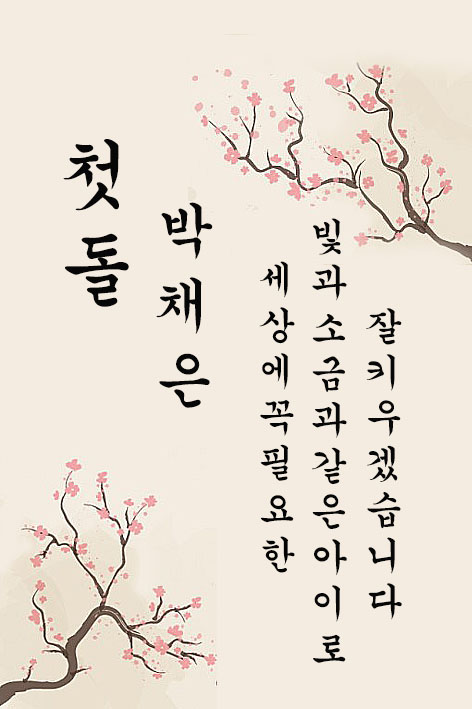 첫돌
박채은
세상에꼭필요한
빛과소금과같은아이로
잘키우겠습니다